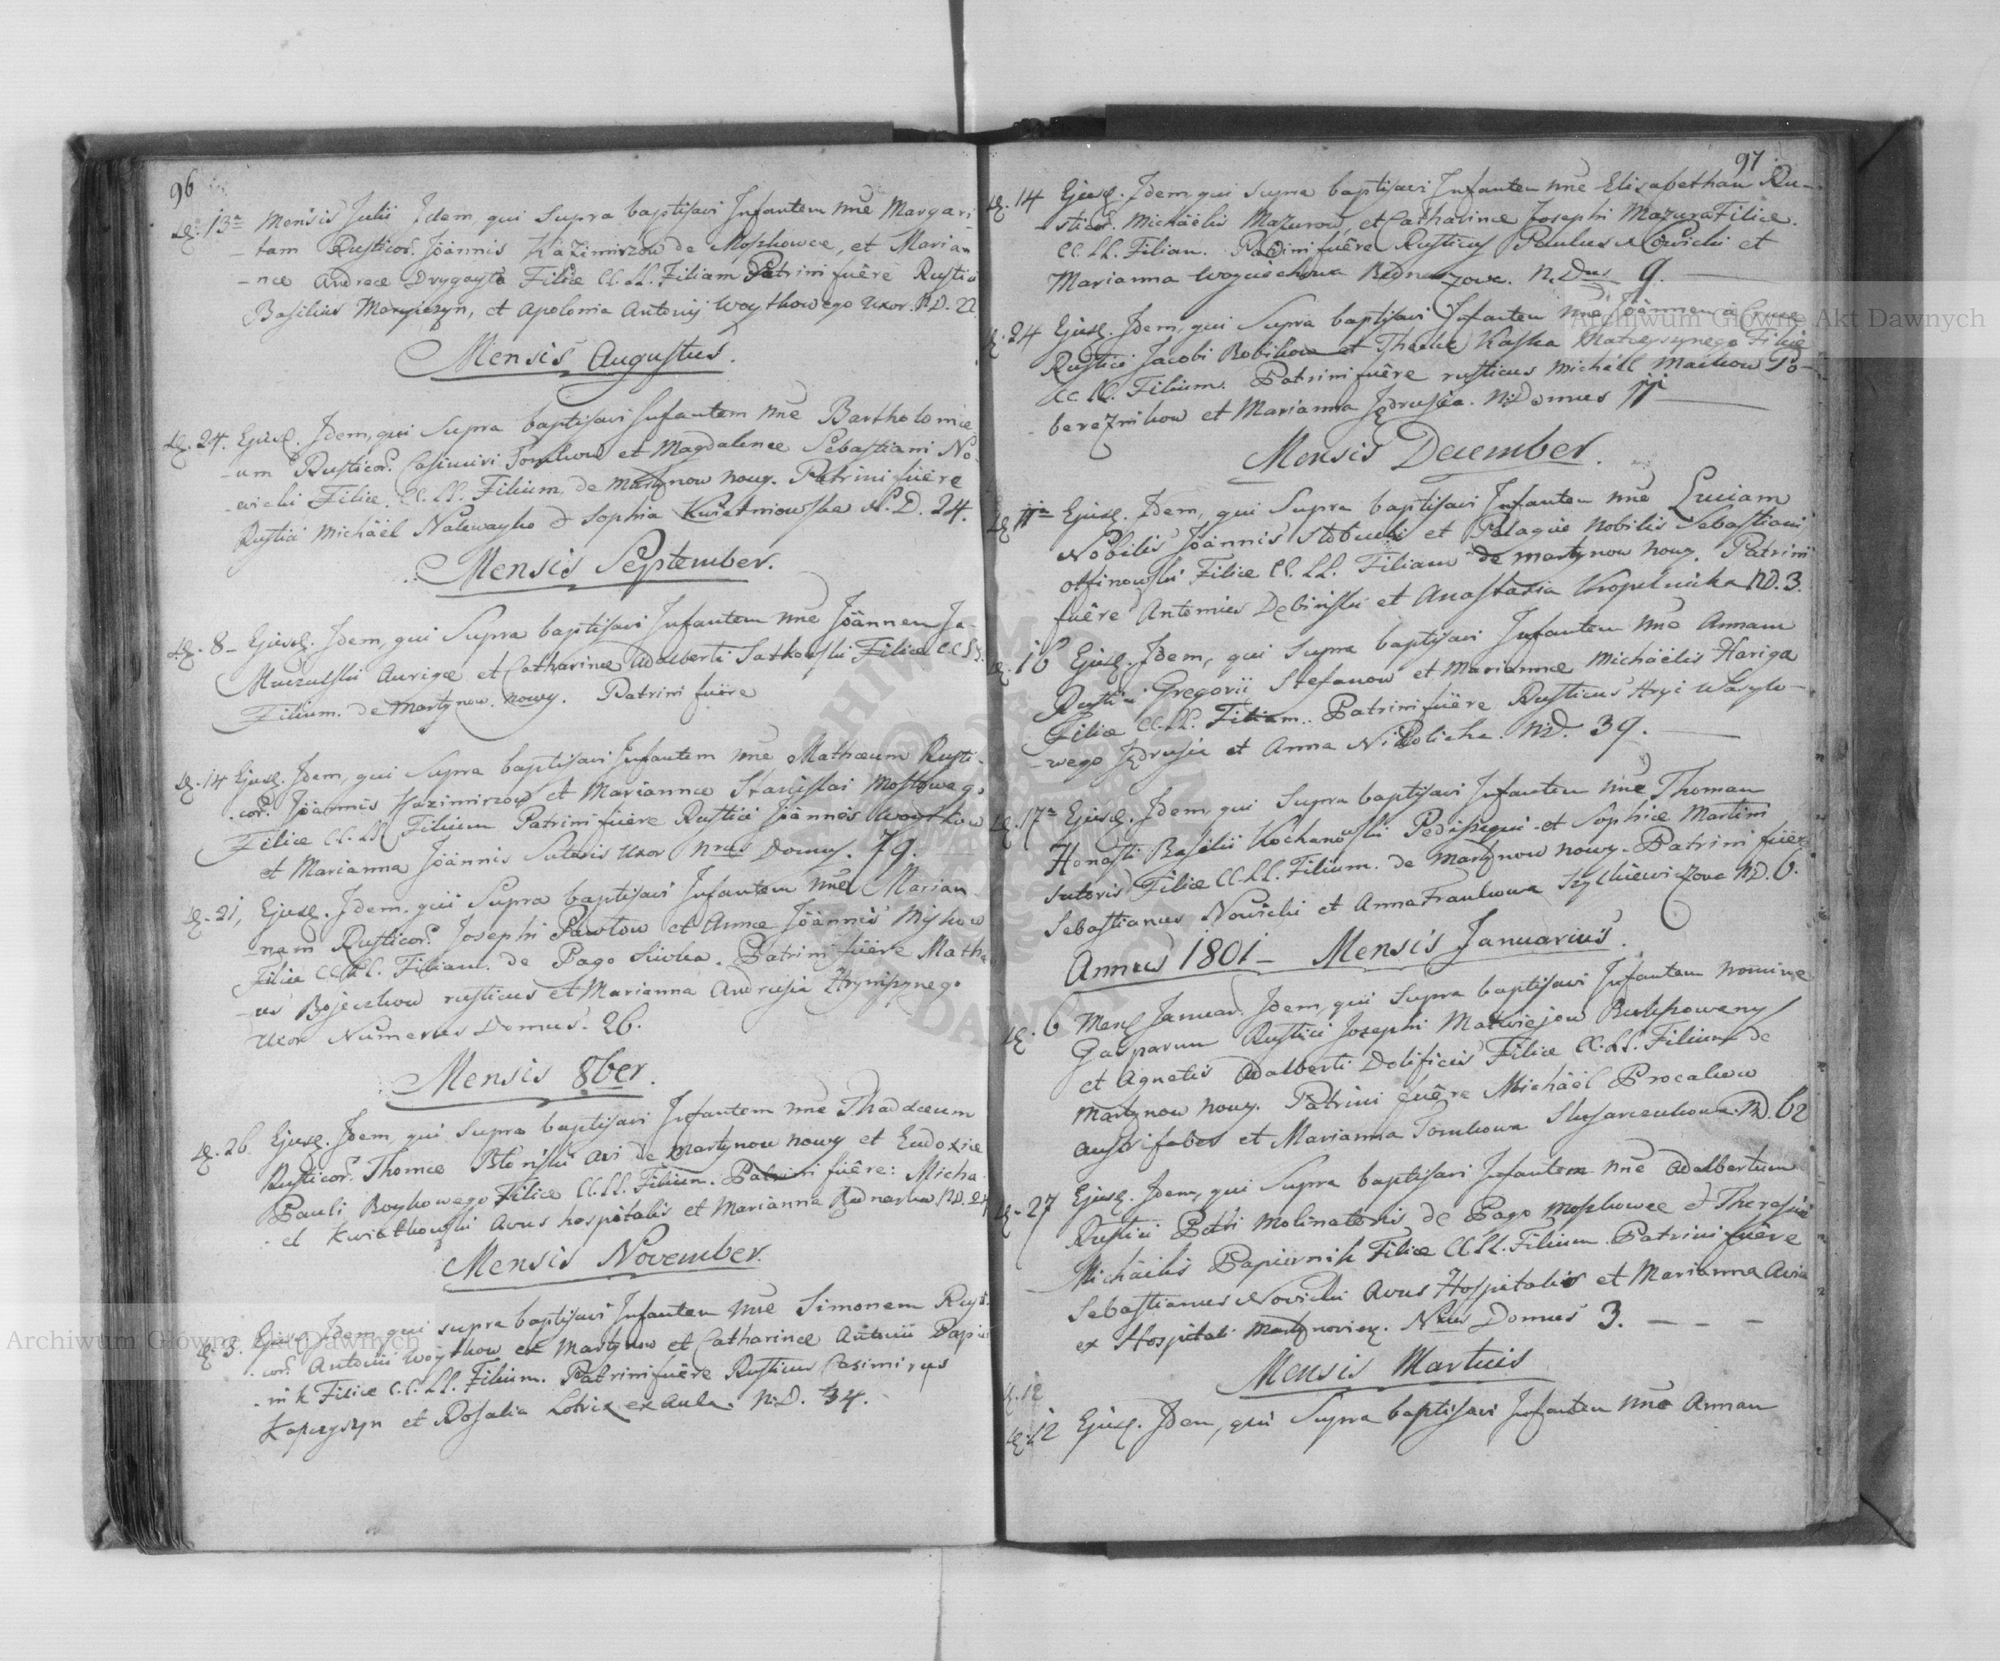 96
D. 13a Mensis Julii Idem, qui Supra baptisavi Infantem nne Margari-
-tam Rusticor. Joannis Kazimirzow de Moszkowce, et Marian-
-nae Andreae Drygayło Filiae CC. LL. Filiam Patrini fuêre Rustici
Basilius, et Apolonia Antonij Woytkowego Uxor. N.D. 22
Mensis Augustus.
D. 24. Ejusd. Idem, qui Supra baptisavi Infantem nne Bartholomae-
-um Rusticor. Casimiri Tomkow et Magdalenae Sebastiani No-
-wicki Filiae. CC. LL. Filium de Martynow nowy. Patrini fuêre
Rustici Michäel Nalewayko & Sophia Kwiatniowska N. D. 24.
Mensis September.
D. 8 - Ejusd. Idem, qui Supra baptisavi Infantem nne Jöannem Ja-
Murzulski Aurigae et Catharinae Adalberti Satkowski Filiae CC LL.
Filium. de Martynow. nowy. Patrini fuêre
D. 14 Ejusd. Idem, qui Supra baptisavi Infantem nne Mathaeum Rusti-
-cor. Jöannis Kazimirzow et Mariannae Stanislai Mostowego
Filiae CC. LL Filium Patrini fuêre Rustici Jöannes Woytkow
et Marianna Jöannis Sutoris Uxor Nrus Domus. 79.
D. 21, Ejusd. Idem. qui Supra baptisavi Infantem nne Marian-
-nam Rusticor. Josephi Pawlow et Annae Jöannis Miskow
Filiae CC LL. Filiam. de Pago Siwka. Patrini fuêre Mathe-
-us Bojeczkow rusticus et Marianna Andrusia Hrymszynego
Uxor Numerus Domus. 26.
Mensis 8ber.
D. 26 Ejusd. Idem, qui Supra baptisavi Infantem nne Thaddaeum
Rusticor. Thomae Błonski avi de Martynow nowy et Eudoxiae
Pauli Boykowego Filiae CC. LL. Filium. Patrini fuêre: Micha-
-el Kwiatkowski Avus hospitalis et Marianna Bednarka N.D. 24
Mensis November.
D. 3. Ejusd. Idem, qui supra baptisavi Infantem nne Simonem Rusti-
-cor. Antonii Woytkow ex Martynow et Catharinae Antonii Papier-
-nik Filiae C.C. LL. Filium. Patrini fuêre Rusticus Casimirus
Kapczyszyn et Rosalia Lotrix ex Aula. N.D. 34.
97
D. 14 Ejusd. Idem qui Supra baptisavi Infantem nne Elisabetham Ru-
-sticor. Michäelis Mazurow, et Catharinae Josephi Mazura Filiae.
CC. LL. Filiam. Patrini fuêre Rusticus Paulus Nowicki et
Marianna Woyciechowa Bednarzowa. N. Dus 9.
D. 24 Ejusd. Idem, qui Supra baptisavi Infantem nne Jöannem a Cruce
Rustici Jacobi Bobikow et Theclae Kaska Mateyszynego Filiae
CC. LL. Filium. Patrini fuêre rusticus Michäel Maikow Po-
-bereznikow et Marianna Jędrusia. N. Domus 11
Mensis December.
D. 11a Ejusd. Idem, qui Supra baptisavi Infantem nne Luciam
Nobilis Jöannis Słobucki et Palagiae Nobilis Sebastiani
Otfinowski Filiae CC. LL. Filiam de Martynow nowy. Patrini
fuêre Antonius Debiński et Anastasia Kropelnicka N.D. 3.
D. 16 Ejusd. Idem, qui Supra baptisavi Infantem nne Annam
Rustici Gregorii Stefanow et Mariannae Michäelis Hariga
Filiae CC. LL. Filiam.. Patrini fuêre Rusticus Hryi Wasylo-
-wego Jędrusia et Anna Nikolicha. N.D. 39.
D. 17a Ejusd. Idem qui Supra baptisavi Infantem nne Thomam
Honesti Basilii Kochanowski Pedissequi et Sophiae Martini
Sutoris Filiae CC. LL. Filium. de Martynow nowy. Patrini fuêre
Sebastianus Nowicki et Anna Frankowa N.D. 6.
Annus 1801 - Mensis Januarius.
D. 6 Mens Januar. Idem, qui Supra baptisavi Infantem nomine
Gasparum Rustici Josephi Matwiejow
et Agnetis Adalberti Dolificis Filiae CC. LL. Filium de
Martynow nowy. Patrini fuêre Michäel Procakow
et Marianna Tomkowa Slusarczukowa. N.D. 62
D. 27 Ejusd. Idem, qui Supra baptisavi Infantem nne Adalbertum
Rustici Petri Molinatoris de Pago Moszkowce et Theresiae
Michäelis Papiernik Filiae CC. LL. Filium. Patrini fuêre
Sebastianus Nowicki Avus Hospitalis et Marianna Avia
ex Hospitali Martynovien. Nrus Domus 3.
Mensis Martius
D. 12
D. 12 Ejusd. Idem, qui Supra baptisavi Infantem nne Annam
Archiwum Główne Akt Dawnych
Archiwum Główne Akt Dawnych